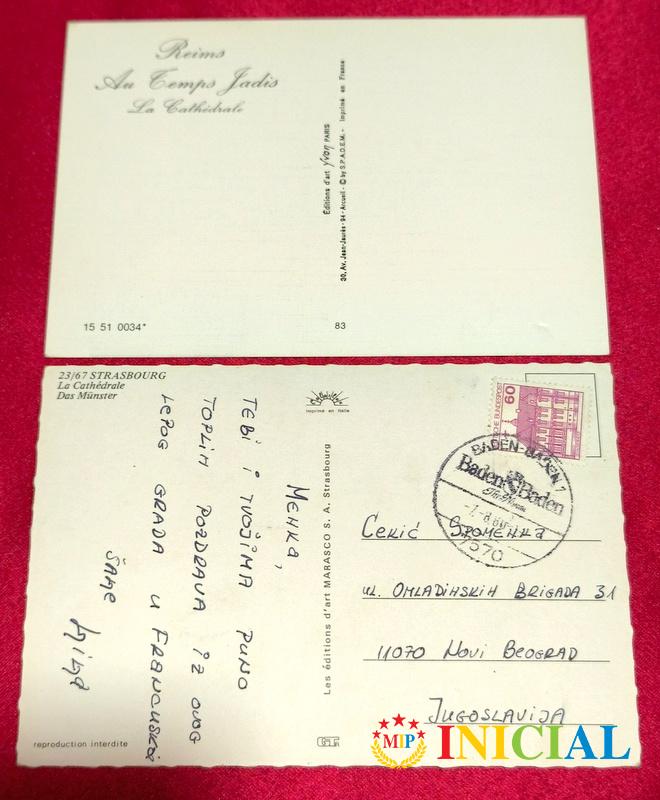 Reims
Au Temps Jadis
La Cathédrale
Editions d'art yvon PARIS
30, Av. Jean-Jaurès - 94 - Arcueil - © by S.P.A.D.E.M. - Imprimé en France
15 51 0034*
83
23/67 STRASBOURG
La Cathédrale
Das Münster
imprimé en Italie
Les éditions d'art MARASCO S. A. Strasbourg
МЕНКА,
TEBI I TVOJIMA PUNO
TOPLIH POZDRAVA IZ OVOG
LEPOG GRADA U FRANCUSKOJ
ŠALJE
reproduction interdite
60
BUNDESPOST
BADEN-BADEN 1
Baden Baden
7570
CEKIĆ SPOMENKA
UL. OMLADINSKIH BRIGADA 31
11070 NOVI BEOGRAD
JUGOSLAVIJA
MIP
INICIAL